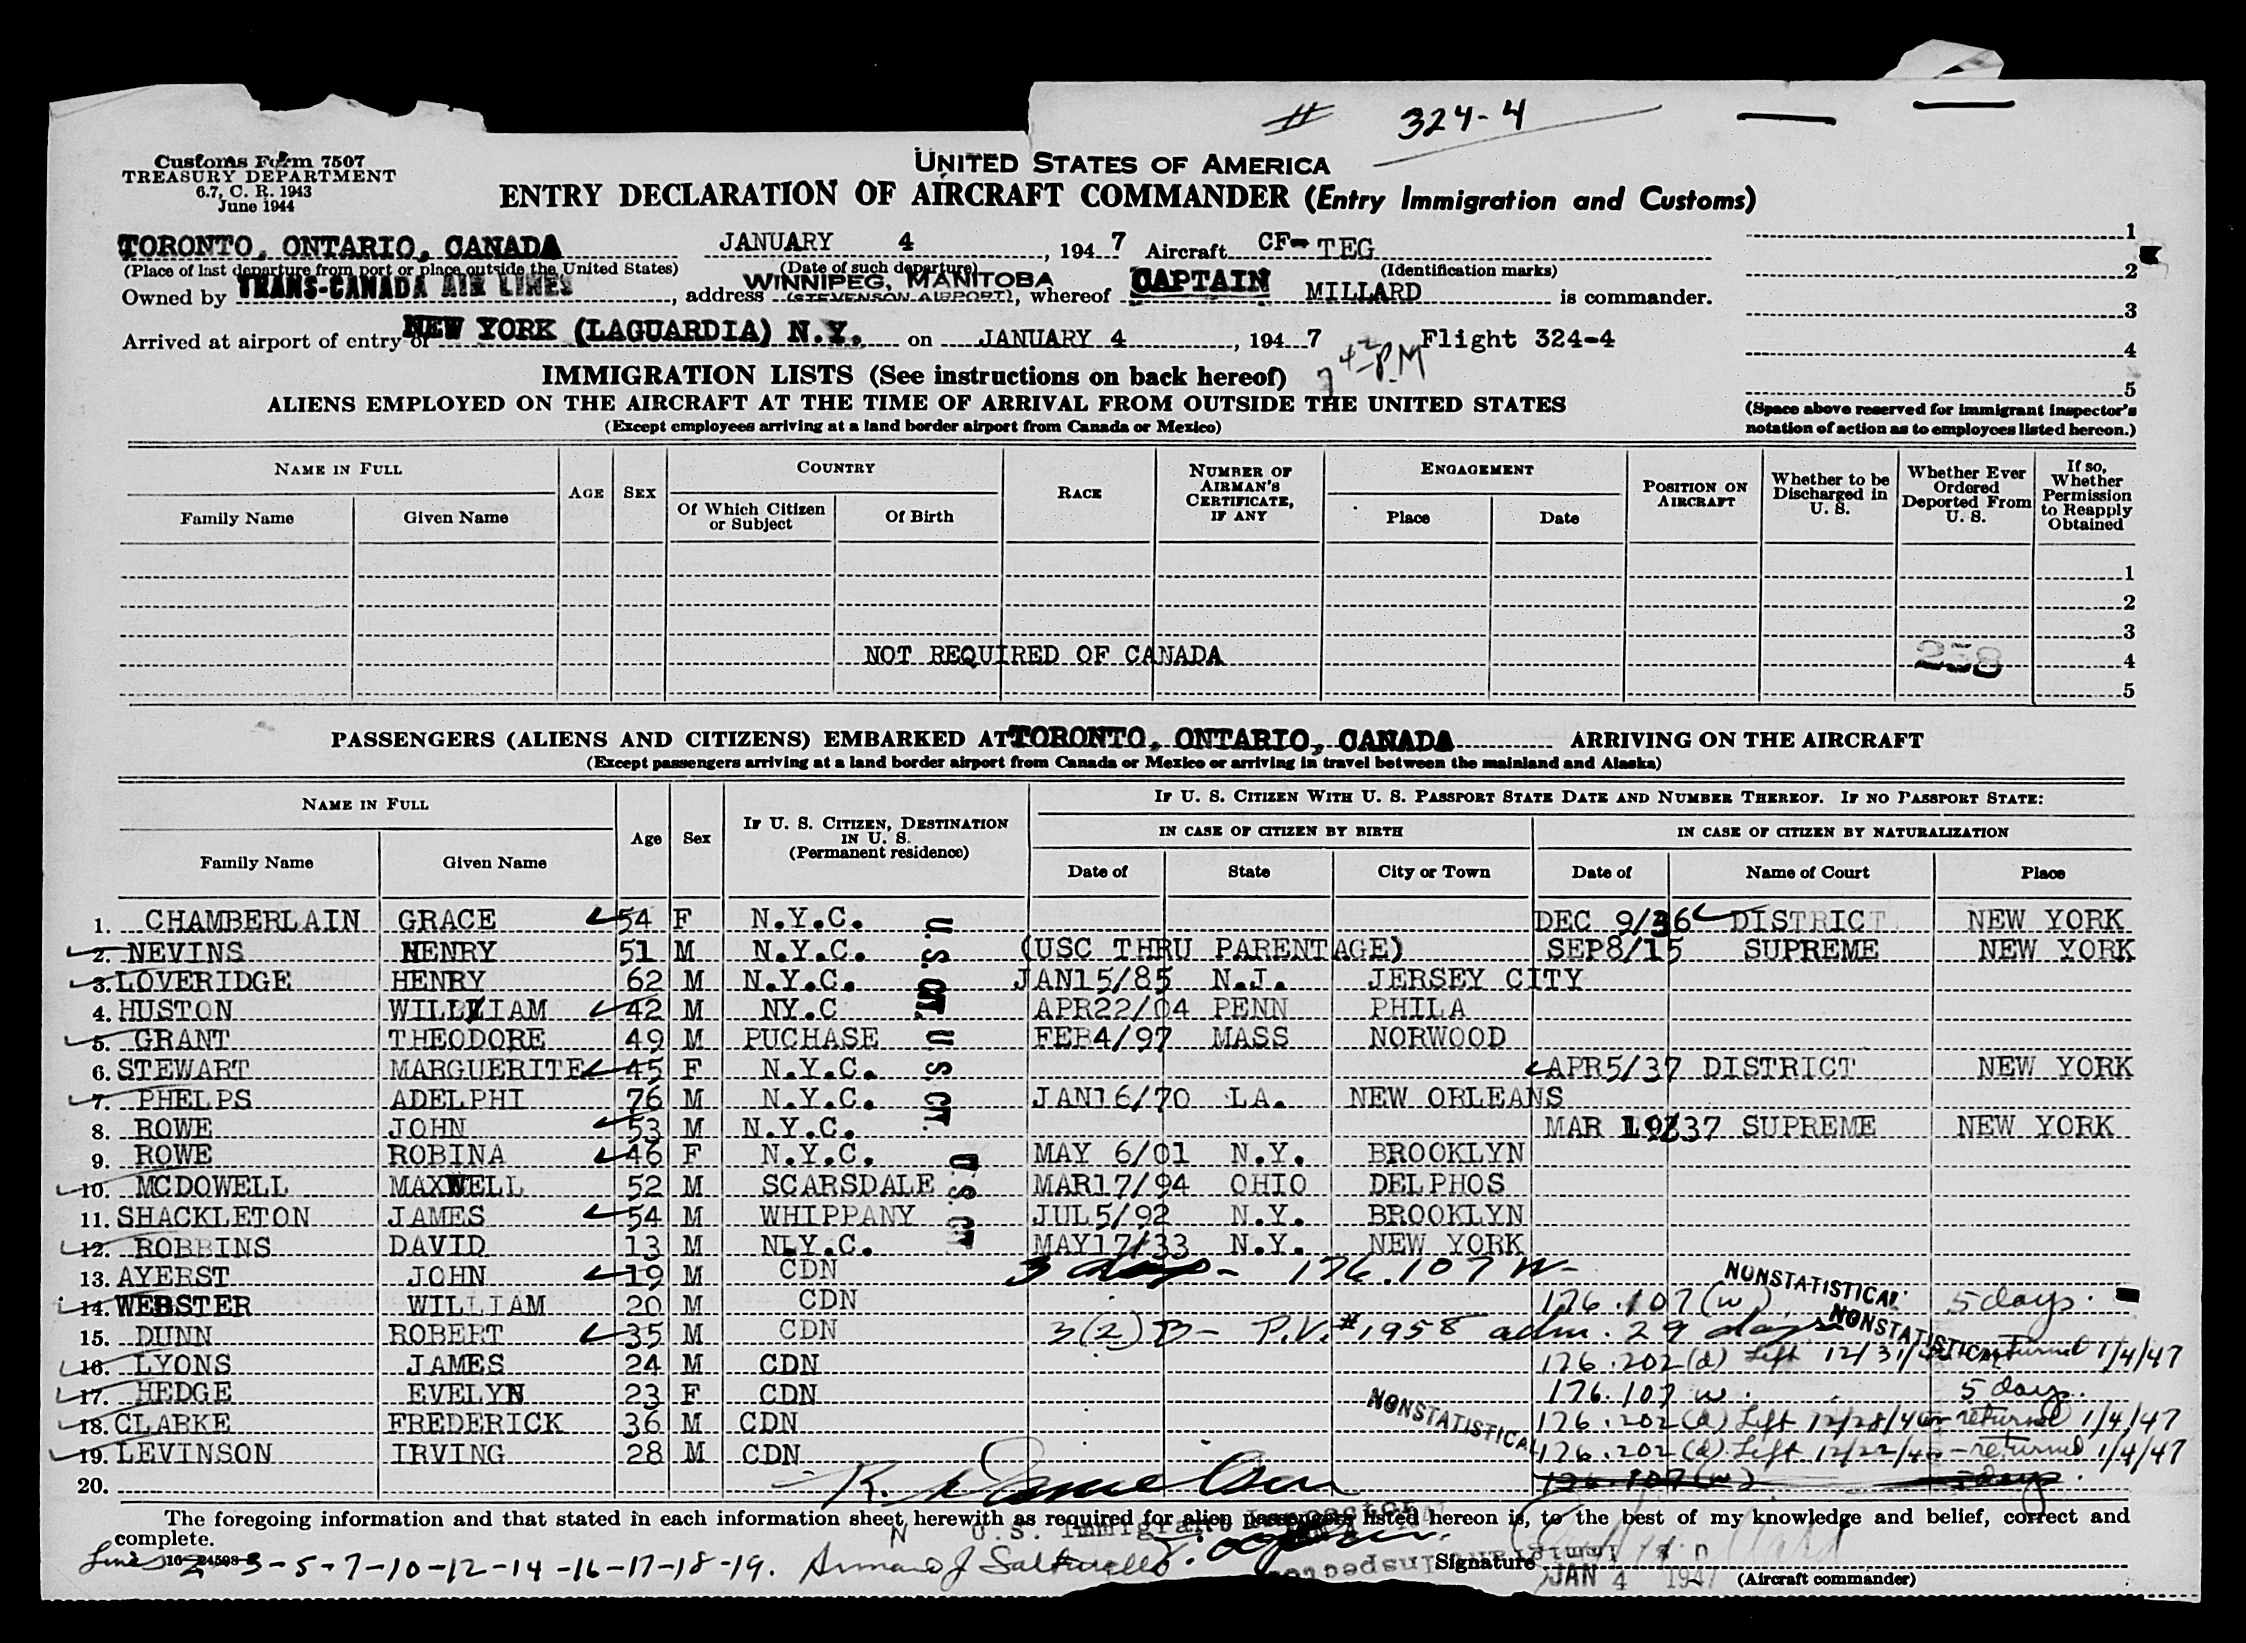 # 324-4
Customs Form 7507
TREASURY DEPARTMENT
6.7, C. R. 1943
June 1944
UNITED STATES OF AMERICA
ENTRY DECLARATION OF AIRCRAFT COMMANDER (Entry Immigration and Customs)
TORONTO, ONTARIO, CANADA JANUARY 4, 1947 Aircraft CF-TEG
(Place of last departure from port or place outside the United States) (Date of such departure) (Identification marks)
Owned by TRANS-CANADA AIR LINES, address WINNIPEG, MANITOBA (STEVENSON AIRPORT), whereof CAPTAIN MILLARD is commander.
Arrived at airport of entry of NEW YORK (LAGUARDIA) N.Y. on JANUARY 4, 1947 Flight 324-4
7 42 P.M
1
2
3
4
5
(Space above reserved for immigrant inspector's
notation of action as to employees listed hereon.)
IMMIGRATION LISTS (See instructions on back hereof)
ALIENS EMPLOYED ON THE AIRCRAFT AT THE TIME OF ARRIVAL FROM OUTSIDE THE UNITED STATES
(Except employees arriving at a land border airport from Canada or Mexico)
NAME IN FULL AGE SEX COUNTRY RACE NUMBER OF AIRMAN'S CERTIFICATE, IF ANY ENGAGEMENT POSITION ON AIRCRAFT Whether to be Discharged in U. S. Whether Ever Ordered Deported From U. S. If so, Whether Permission to Reapply Obtained
Family Name Given Name Of Which Citizen or Subject Of Birth Place Date
1
2
3
NOT REQUIRED OF CANADA 258 4
5
PASSENGERS (ALIENS AND CITIZENS) EMBARKED AT TORONTO, ONTARIO, CANADA ARRIVING ON THE AIRCRAFT
(Except passengers arriving at a land border airport from Canada or Mexico or arriving in travel between the mainland and Alaska)
NAME IN FULL Age Sex IF U. S. CITIZEN, DESTINATION IN U. S. (Permanent residence) IF U. S. CITIZEN WITH U. S. PASSPORT STATE DATE AND NUMBER THEREOF. IF NO PASSPORT STATE:
IN CASE OF CITIZEN BY BIRTH IN CASE OF CITIZEN BY NATURALIZATION
Family Name Given Name Date of State City or Town Date of Name of Court Place
1. CHAMBERLAIN GRACE 54 F N.Y.C. DEC 9/36 DISTRICT NEW YORK
2. NEVINS HENRY 51 M N.Y.C. (USC THRU PARENTAGE) SEP8/15 SUPREME NEW YORK
3. LOVERIDGE HENRY 62 M N.Y.C. JAN15/85 N.J. JERSEY CITY
4. HUSTON WILLIAM 42 M NY.C APR22/04 PENN PHILA
5. GRANT THEODORE 49 M PUCHASE FEB4/97 MASS NORWOOD
6. STEWART MARGUERITE 45 F N.Y.C. APR5/37 DISTRICT NEW YORK
7. PHELPS ADELPHI 76 M N.Y.C. JAN16/70 LA. NEW ORLEANS
8. ROWE JOHN 53 M N.Y.C. MAR 37 SUPREME NEW YORK
9. ROWE ROBINA 46 F N.Y.C. MAY 6/01 N.Y. BROOKLYN
10. MCDOWELL MAXWELL 52 M SCARSDALE MAR17/94 OHIO DELPHOS
11. SHACKLETON JAMES 54 M WHIPPANY JUL5/92 N.Y. BROOKLYN
12. ROBBINS DAVID 13 M N.Y.C. MAY17/33 N.Y. NEW YORK
U.S. CIT. U S CT. U.S. CT
13. AYERST JOHN 19 M CDN 3 days - 176.107 W - NONSTATISTICAL
14. WEBSTER WILLIAM 20 M CDN 176.107 (w) 5 days.
15. DUNN ROBERT 35 M CDN 3(2) B - P.V. #1958 adm. 29 days NONSTATISTICAL
16. LYONS JAMES 24 M CDN 176.202(d) Left 12/31/46 returned 1/4/47
17. HEDGE EVELYN 23 F CDN 176.107 w. 5 days.
18. CLARKE FREDERICK 36 M CDN NONSTATISTICAL 176.202(d) Left 12/28/46 - returned 1/4/47
19. LEVINSON IRVING 28 M CDN 176.202(d) Left 12/22/46 - returned 1/4/47
20. 176.107 (w) 5 days.
The foregoing information and that stated in each information sheet herewith as required for alien passengers listed hereon is, to the best of my knowledge and belief, correct and
complete.
U.S. Immigrant Inspector
Lines 2-3-5-7-10-12-14-16-17-18-19.
16-24598-2
Signature
JAN 4 1947 (Aircraft commander)